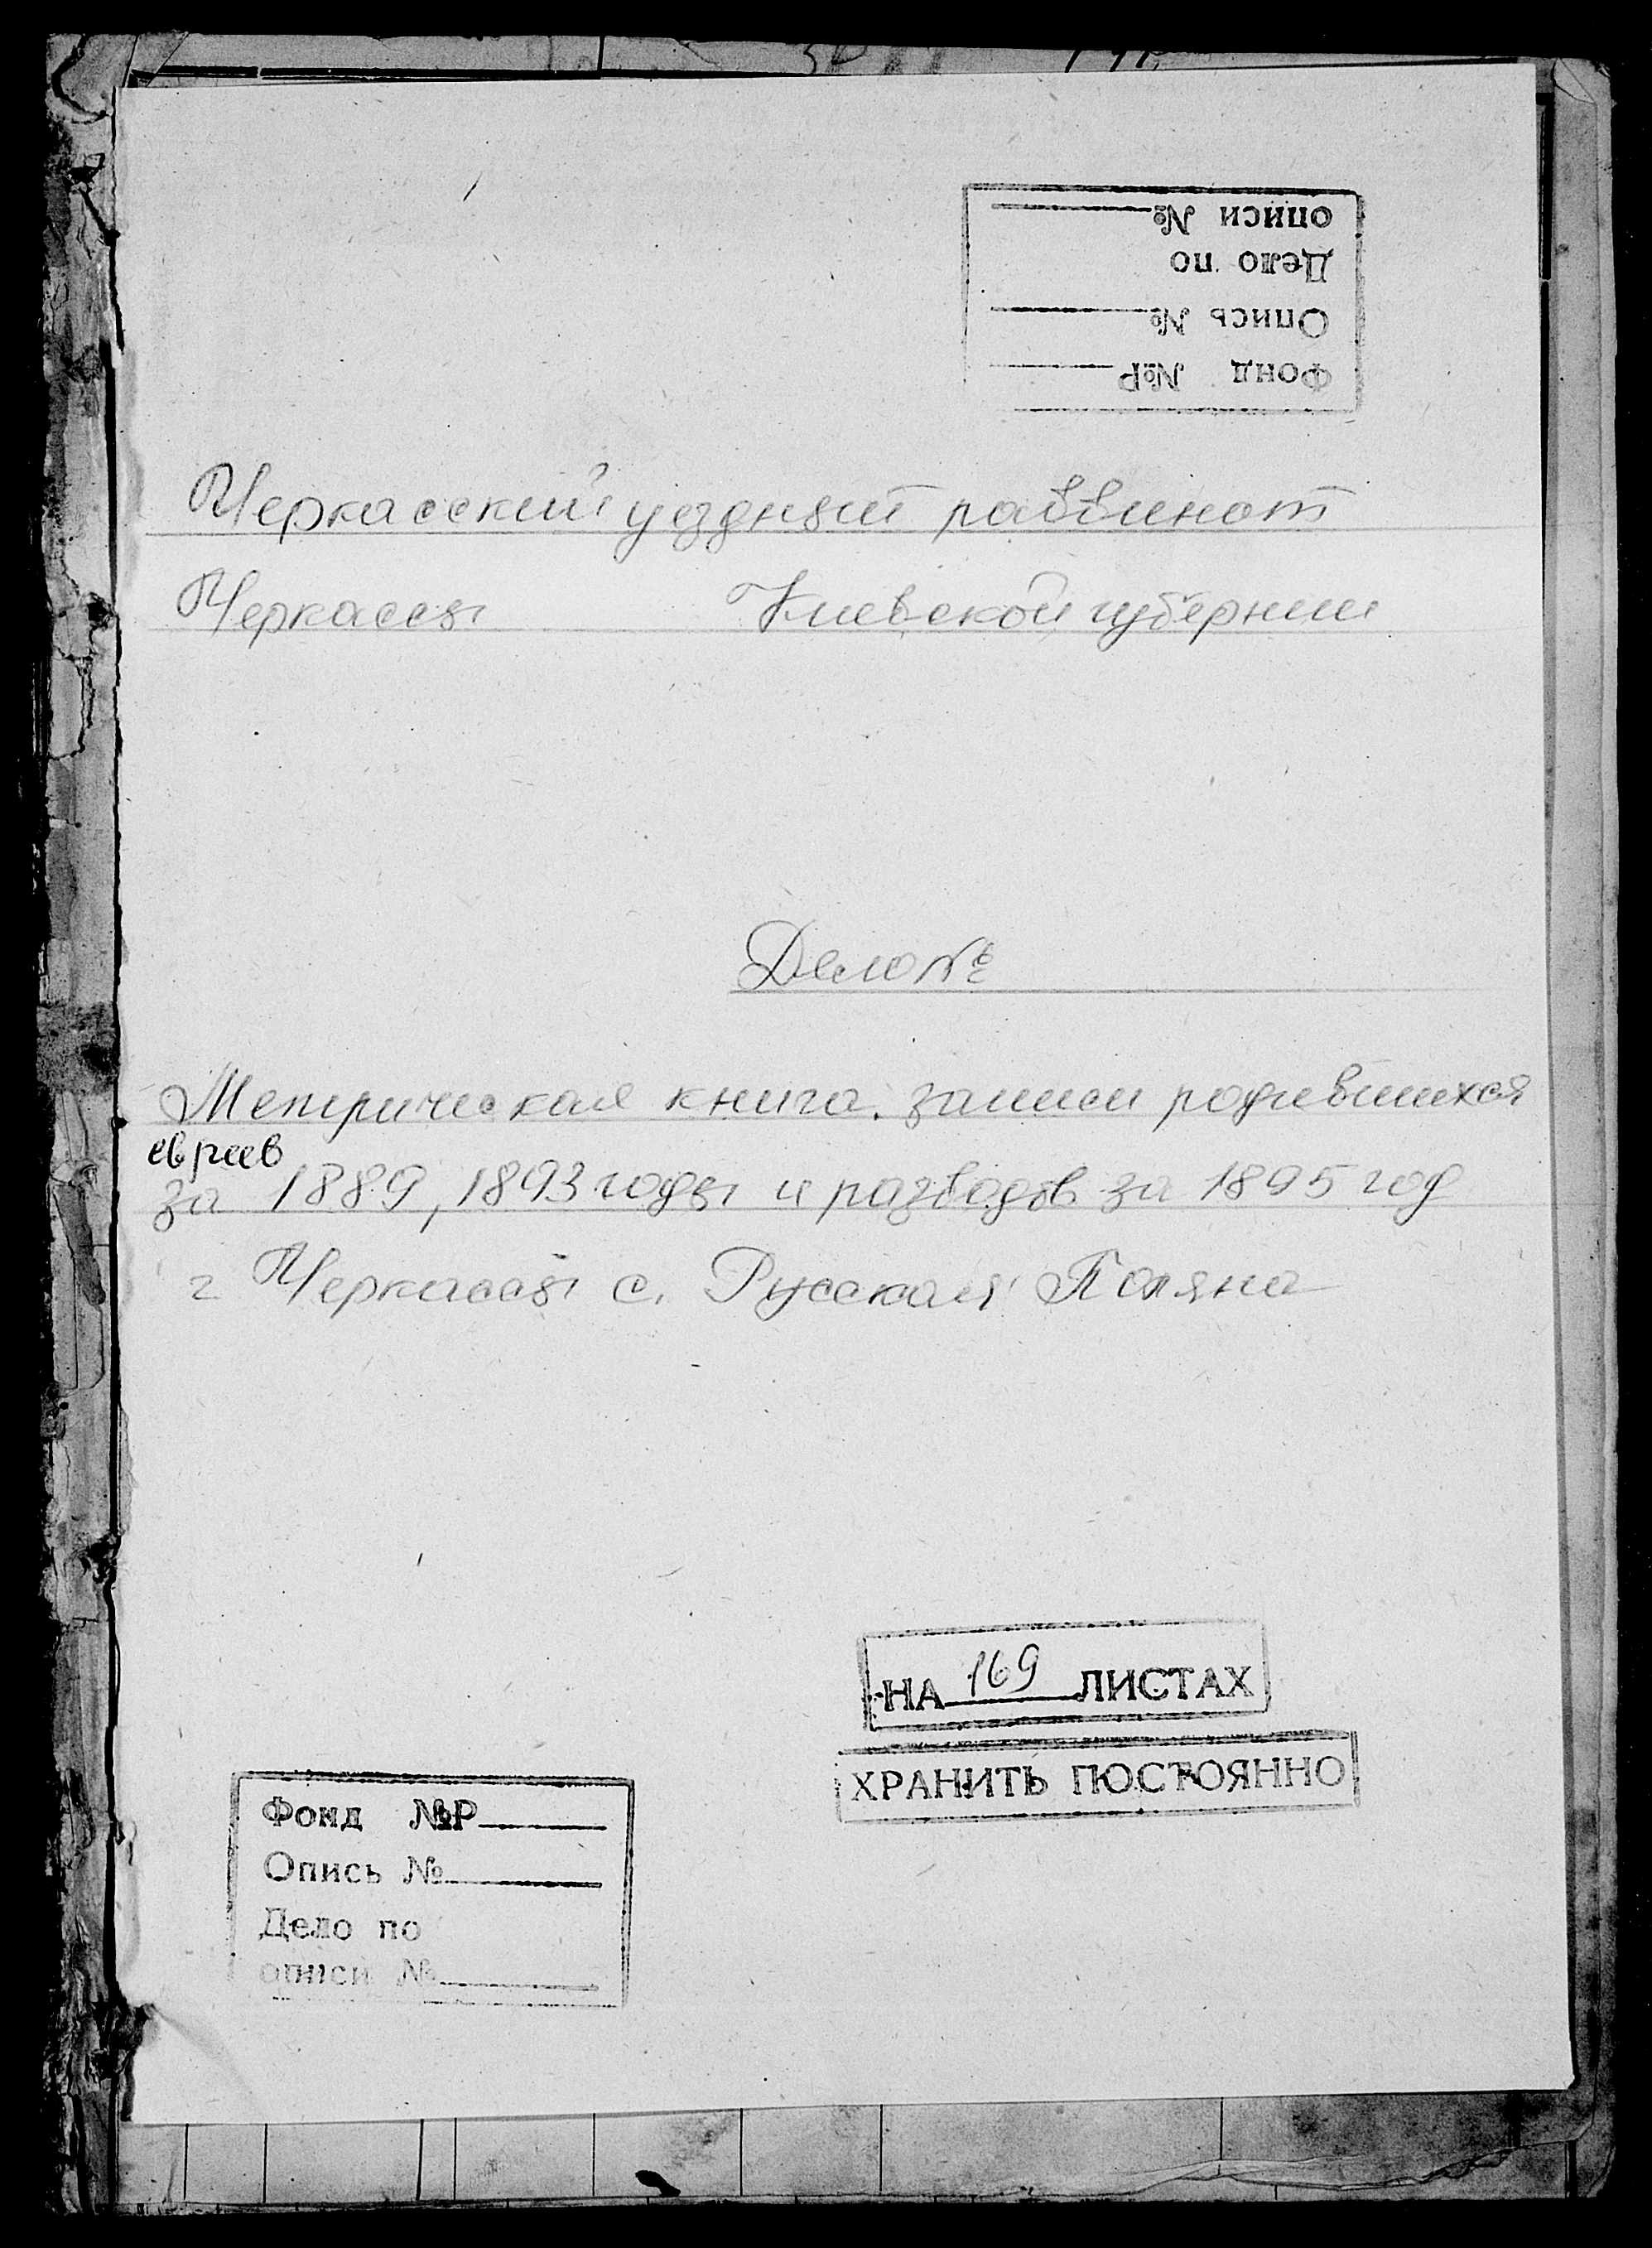 Фонд №Р
Опись №
Дело по
описи №
Черкасский уездный раввинат
Черкассы Киевской губернии
Дело №
Метрическая книга записи родившихся
евреев
за 1889, 1893 годы и разводов за 1895 год
г Черкассы с. Русская Поляна
НА 169 ЛИСТАХ
ХРАНИТЬ ПОСТОЯННО
Фонд №Р
Опись №
Дело по
описи №